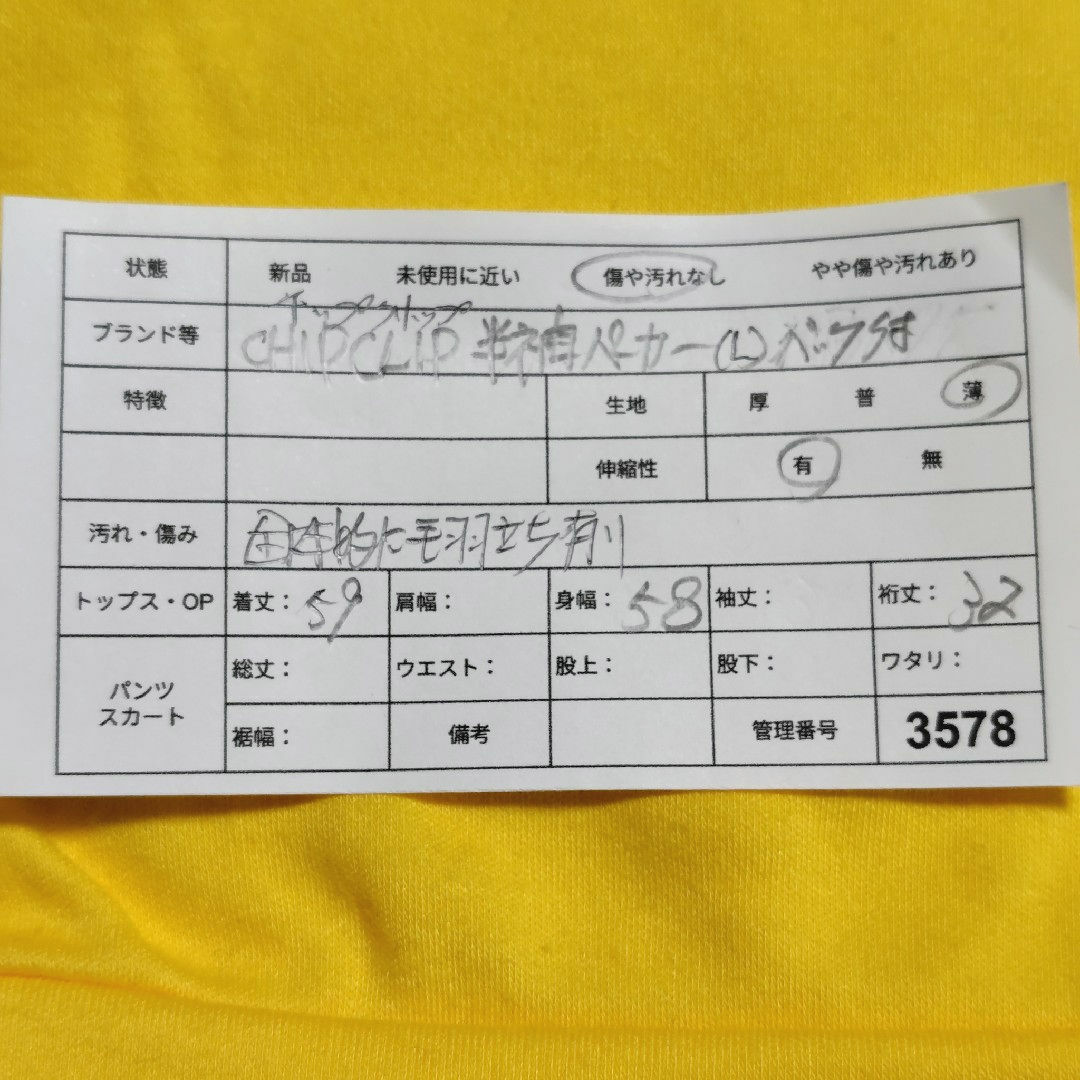 状態 新品 未使用に近い 傷や汚れなし やや傷や汚れあり
チップクリップ
ブランド等 CHIPCLIP 半袖パーカー(L)
特徴 生地 厚 普 薄
伸縮性 有 無
汚れ・傷み 全体的に毛羽立ち有り
トップス・OP 着丈：59 肩幅： 身幅：58 袖丈： 裄丈：32
パンツ スカート 総丈： ウエスト： 股上： 股下： ワタリ：
裾幅： 備考 管理番号 3578